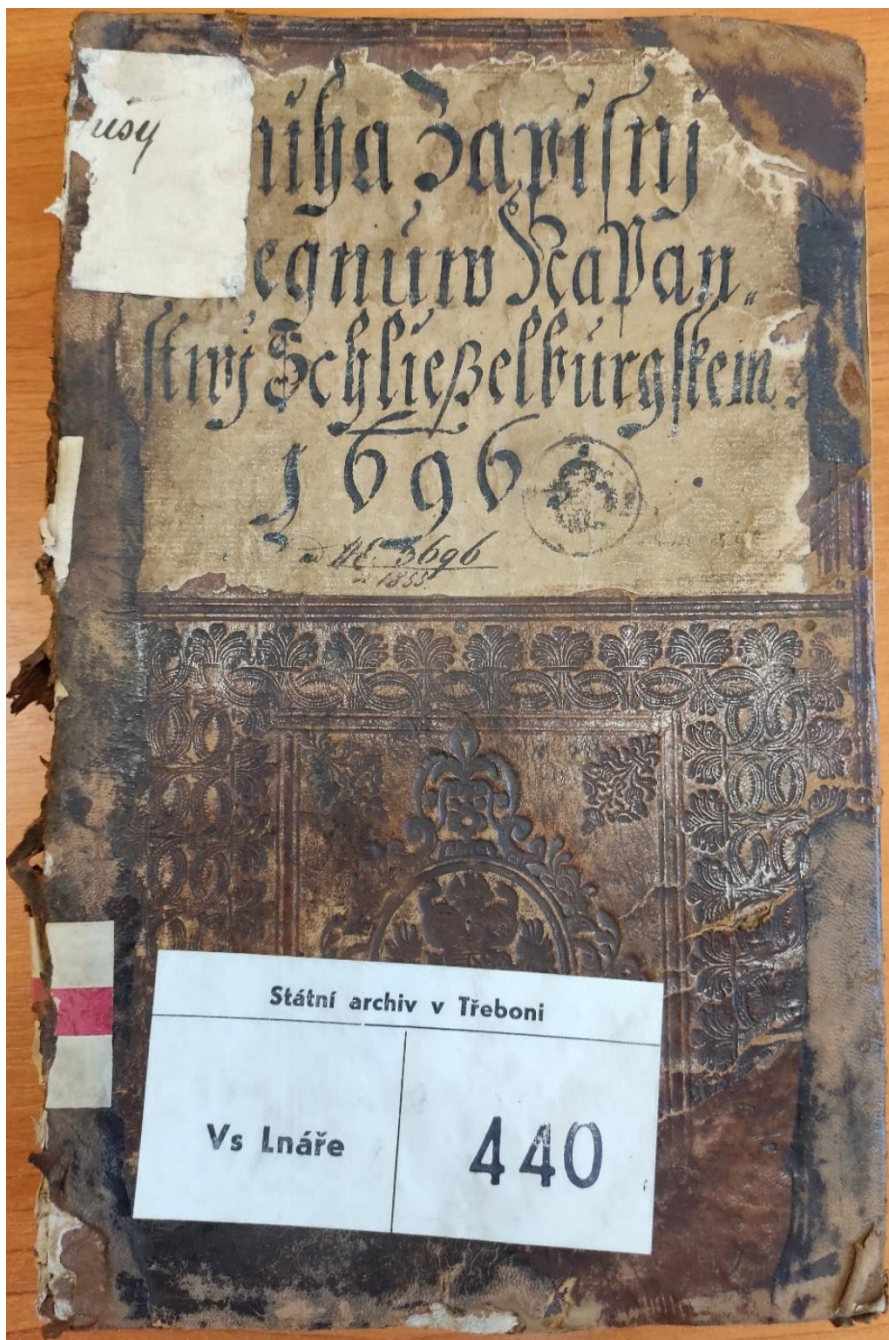 usy
niha Zapisnj
egnuw Na Pan„
stwj Schließelburgskem
1696
3696
1855
Státní archiv v Třeboni
Vs Lnáře
440